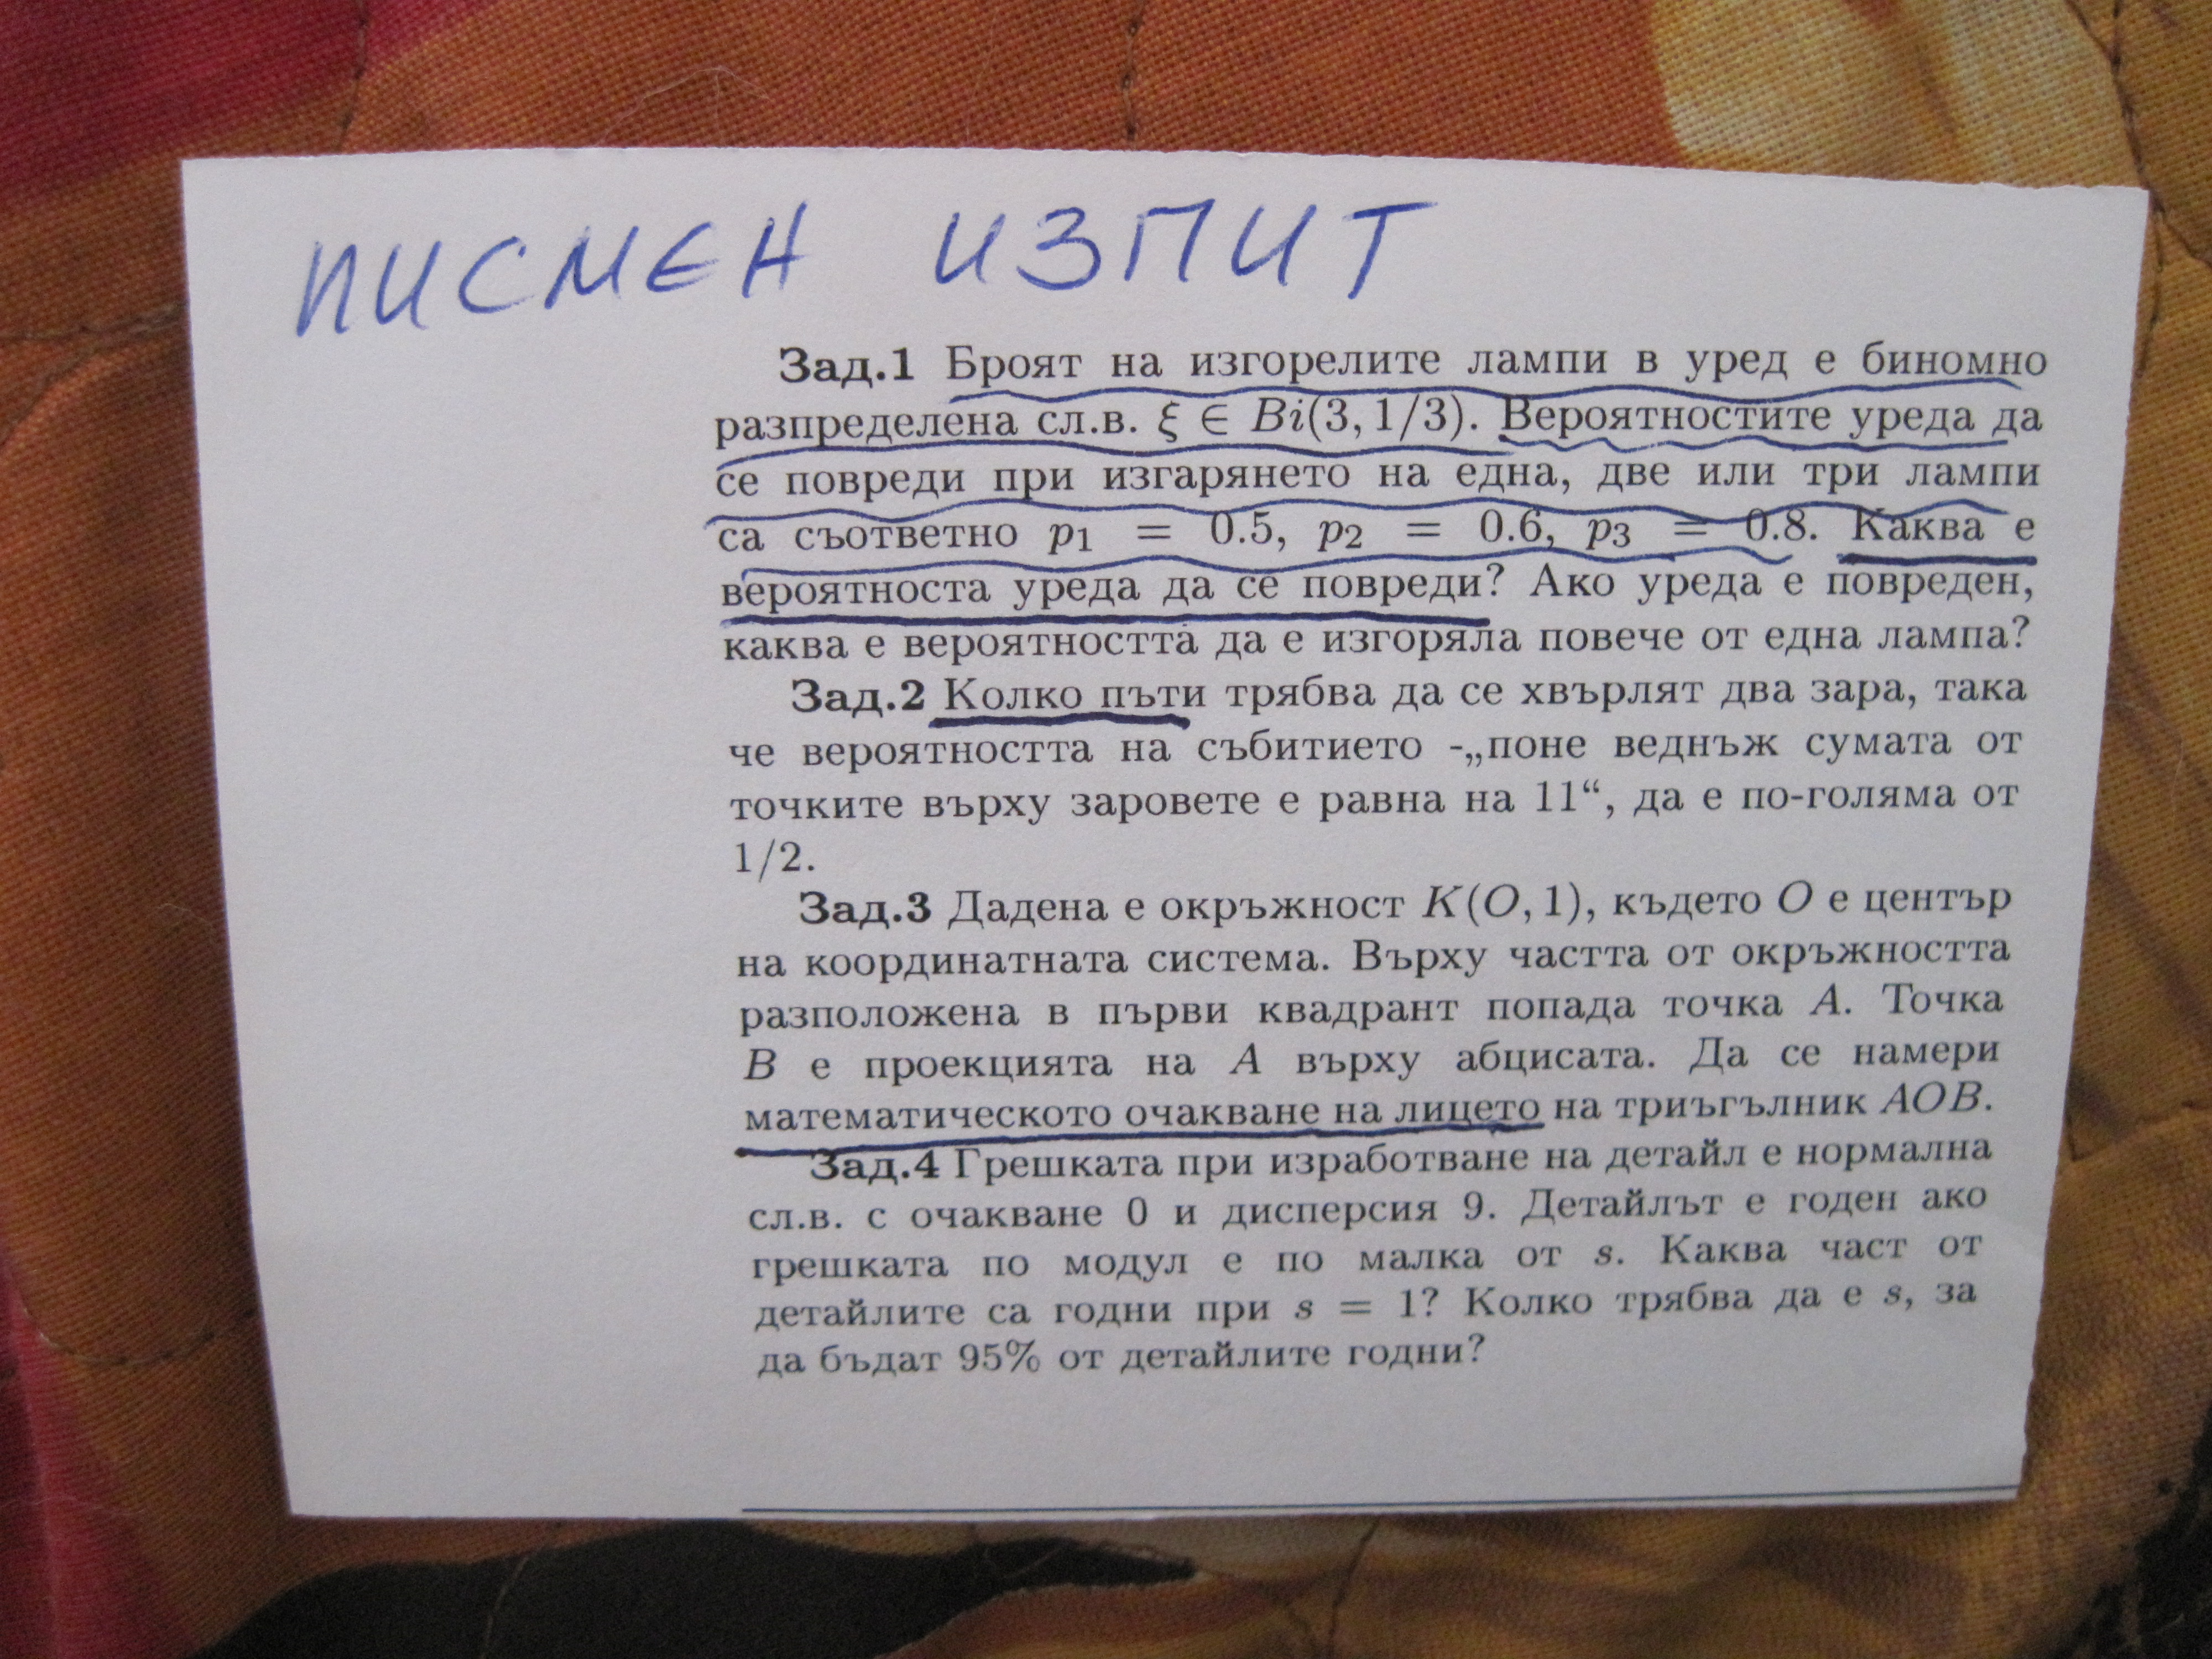 ПИСМЕН ИЗПИТ
Зад.1 Броят на изгорелите лампи в уред е биномно
разпределена сл.в. ξ ∈ Bi(3, 1/3). Вероятностите уреда да
се повреди при изгарянето на една, две или три лампи
са съответно p₁ = 0.5, p₂ = 0.6, p₃ = 0.8. Каква е
вероятноста уреда да се повреди? Ако уреда е повреден,
каква е вероятността да е изгоряла повече от една лампа?
Зад.2 Колко пъти трябва да се хвърлят два зара, така
че вероятността на събитието -„поне веднъж сумата от
точките върху заровете е равна на 11“, да е по-голяма от
1/2.
Зад.3 Дадена е окръжност K(O, 1), където O е център
на координатната система. Върху частта от окръжността
разположена в първи квадрант попада точка A. Точка
B е проекцията на A върху абцисата. Да се намери
математическото очакване на лицето на триъгълник AOB.
Зад.4 Грешката при изработване на детайл е нормална
сл.в. с очакване 0 и дисперсия 9. Детайлът е годен ако
грешката по модул е по малка от s. Каква част от
детайлите са годни при s = 1? Колко трябва да е s, за
да бъдат 95% от детайлите годни?